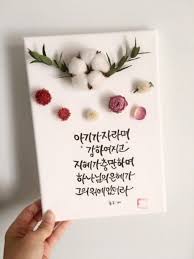 아기가 자라며
강하여지고
지혜가 충만하며
하나님의 은혜가
그의 위에 있더라